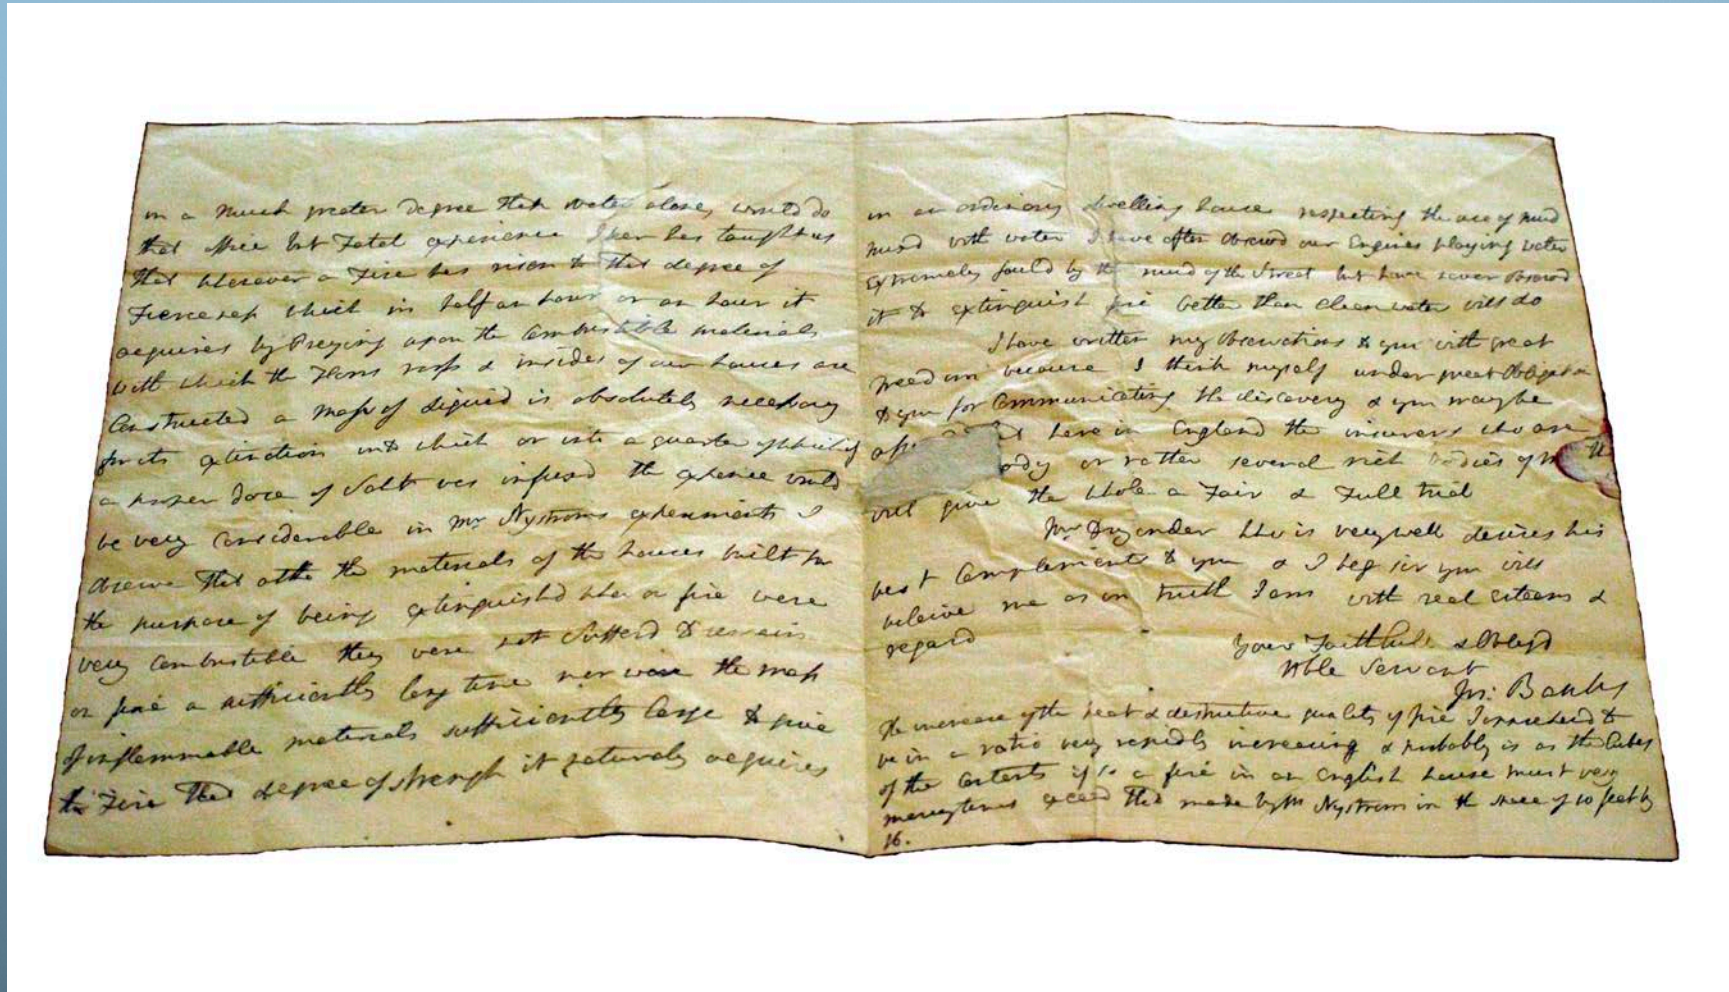 in a much greater degree that water alone, would do
that office but Fatal experience I fear has taught us
that wherever a Fire has risen to that degree of
Fierceness which in half an hour or an hour it
acquires by Preying upon the Combustible materials
with which the Floors roofs & insides of our houses are
Constructed a mass of Liquid is absolutely necessary
for its extinction into which or into a quarter of which if
a proper dose of Salt was infused the expence would
be very Considerable in Mr Nystroms experiments I
observe that altho the materials of the houses built for
the purpose of being extinguishd when on fire were
very Combustible they were not Sufferd to remain
on fire a sufficiently long time nor were the mass
of inflammable materials sufficiently large to give
the Fire that degree of strengh it naturaly acquires
in an ordinary dwelling house respecting the use of mud
mixd with water I have often observd our Engines playing water
Extremely fould by the mud of the Street but have never observd
it to extinguish fire better than clean water will do
I have written my observations to you with great
freedom because I think myself under great Obligation
to you for Communicating the discovery & you may be
here in England the insurers who are
body or rather several rich bodies of
will give the whole a Fair & Full trial
Mr Dryander who is very well desires his
best Compliments to you & I beg sir you will
beleive me as in truth I am with real esteem &
regard
Your Faithfull & Obligd
Hble Servant
Jos: Banks
The increase of the heat & destructive quality of fire I apprehend to
be in a ratio very rapidly increasing & probably is as the Cubes
of the Contents if so a fire in an English house must very
many times exceed that made by Mr Nystrom in the space of 10 feet by
16.